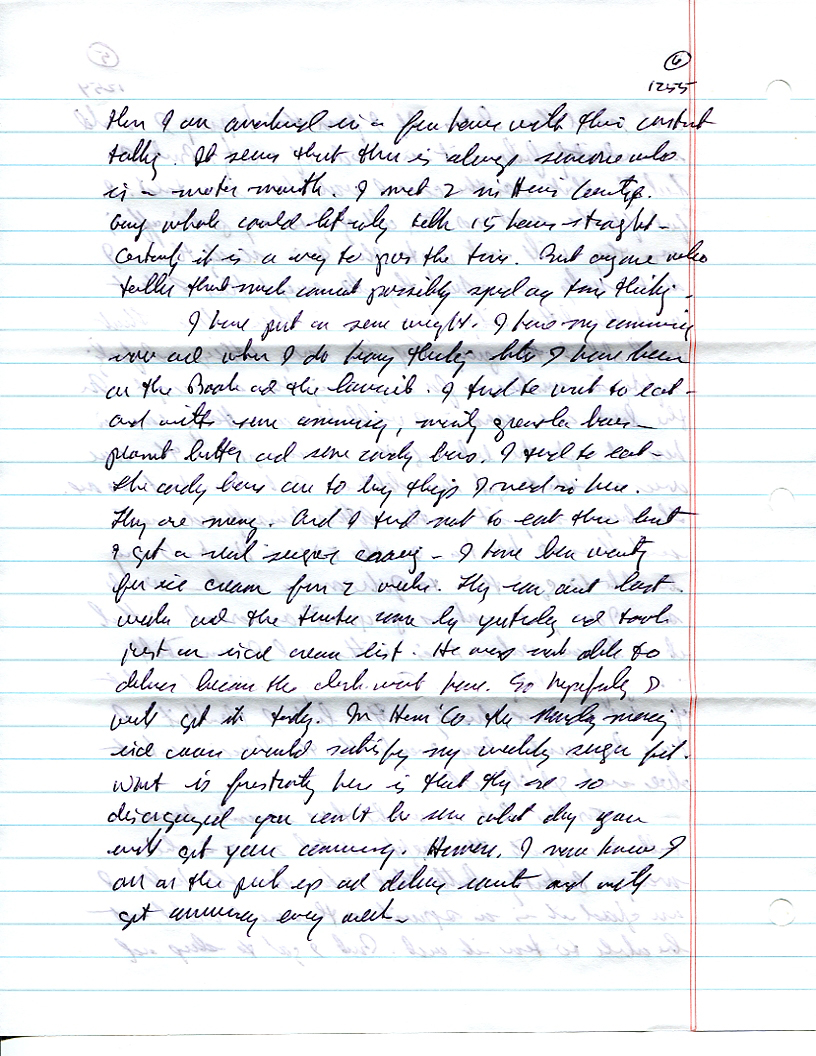 6
1255
then I am in a few hours with this constant
talking. It seems that there is always someone who
is a motor mouth. I met 2 in Henri County.
Guy whole could literally talk 15 hours straight -
Certainly it is a way to pass the time. But anyone who
talks that much cannot possibly spend any time thinking.
I have put on some weight. I have my commissary
now and when I do heavy thinking like I have been
on the Book and the lawsuit. I tend to want to eat -
and with some commissary, mainly granola bars -
peanut butter and some candy bars. I tend to eat -
the candy bars are to buy things I need in here.
They are money. And I tend not to eat them but
I get a real sugar craving - I have been wanting
for ice cream for 2 weeks. They ran out last
week and the trustee came by yesterday and took
just an iced cream list. He was not able to
deliver because the clerk wasn't here. So hopefully I
will get it today. In Henri Co. the Monday morning
iced cream would satisfy my weekly sugar fit.
What is frustrating here is that they are so
disorganized you can't be sure what day you
will get your commissary. However, I now know I
am on the pick up and delivery route and will
get commissary every week -